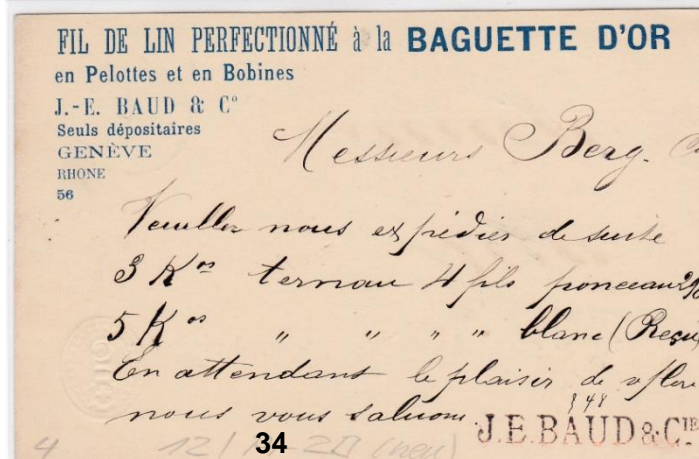 FIL DE LIN PERFECTIONNÉ à la BAGUETTE D'OR
en Pelottes et en Bobines
J.-E. BAUD & Cº
Seuls dépositaires
GENÈVE
RHONE
56
Messieurs Berg.
Veuillez nous expédier de suite
3 Kos ternau 4 fils ponceau
5 Kos " " " " blanc (
En attendant le plaisir de
nous vous saluons.
J.E.BAUD & CIE
4 34